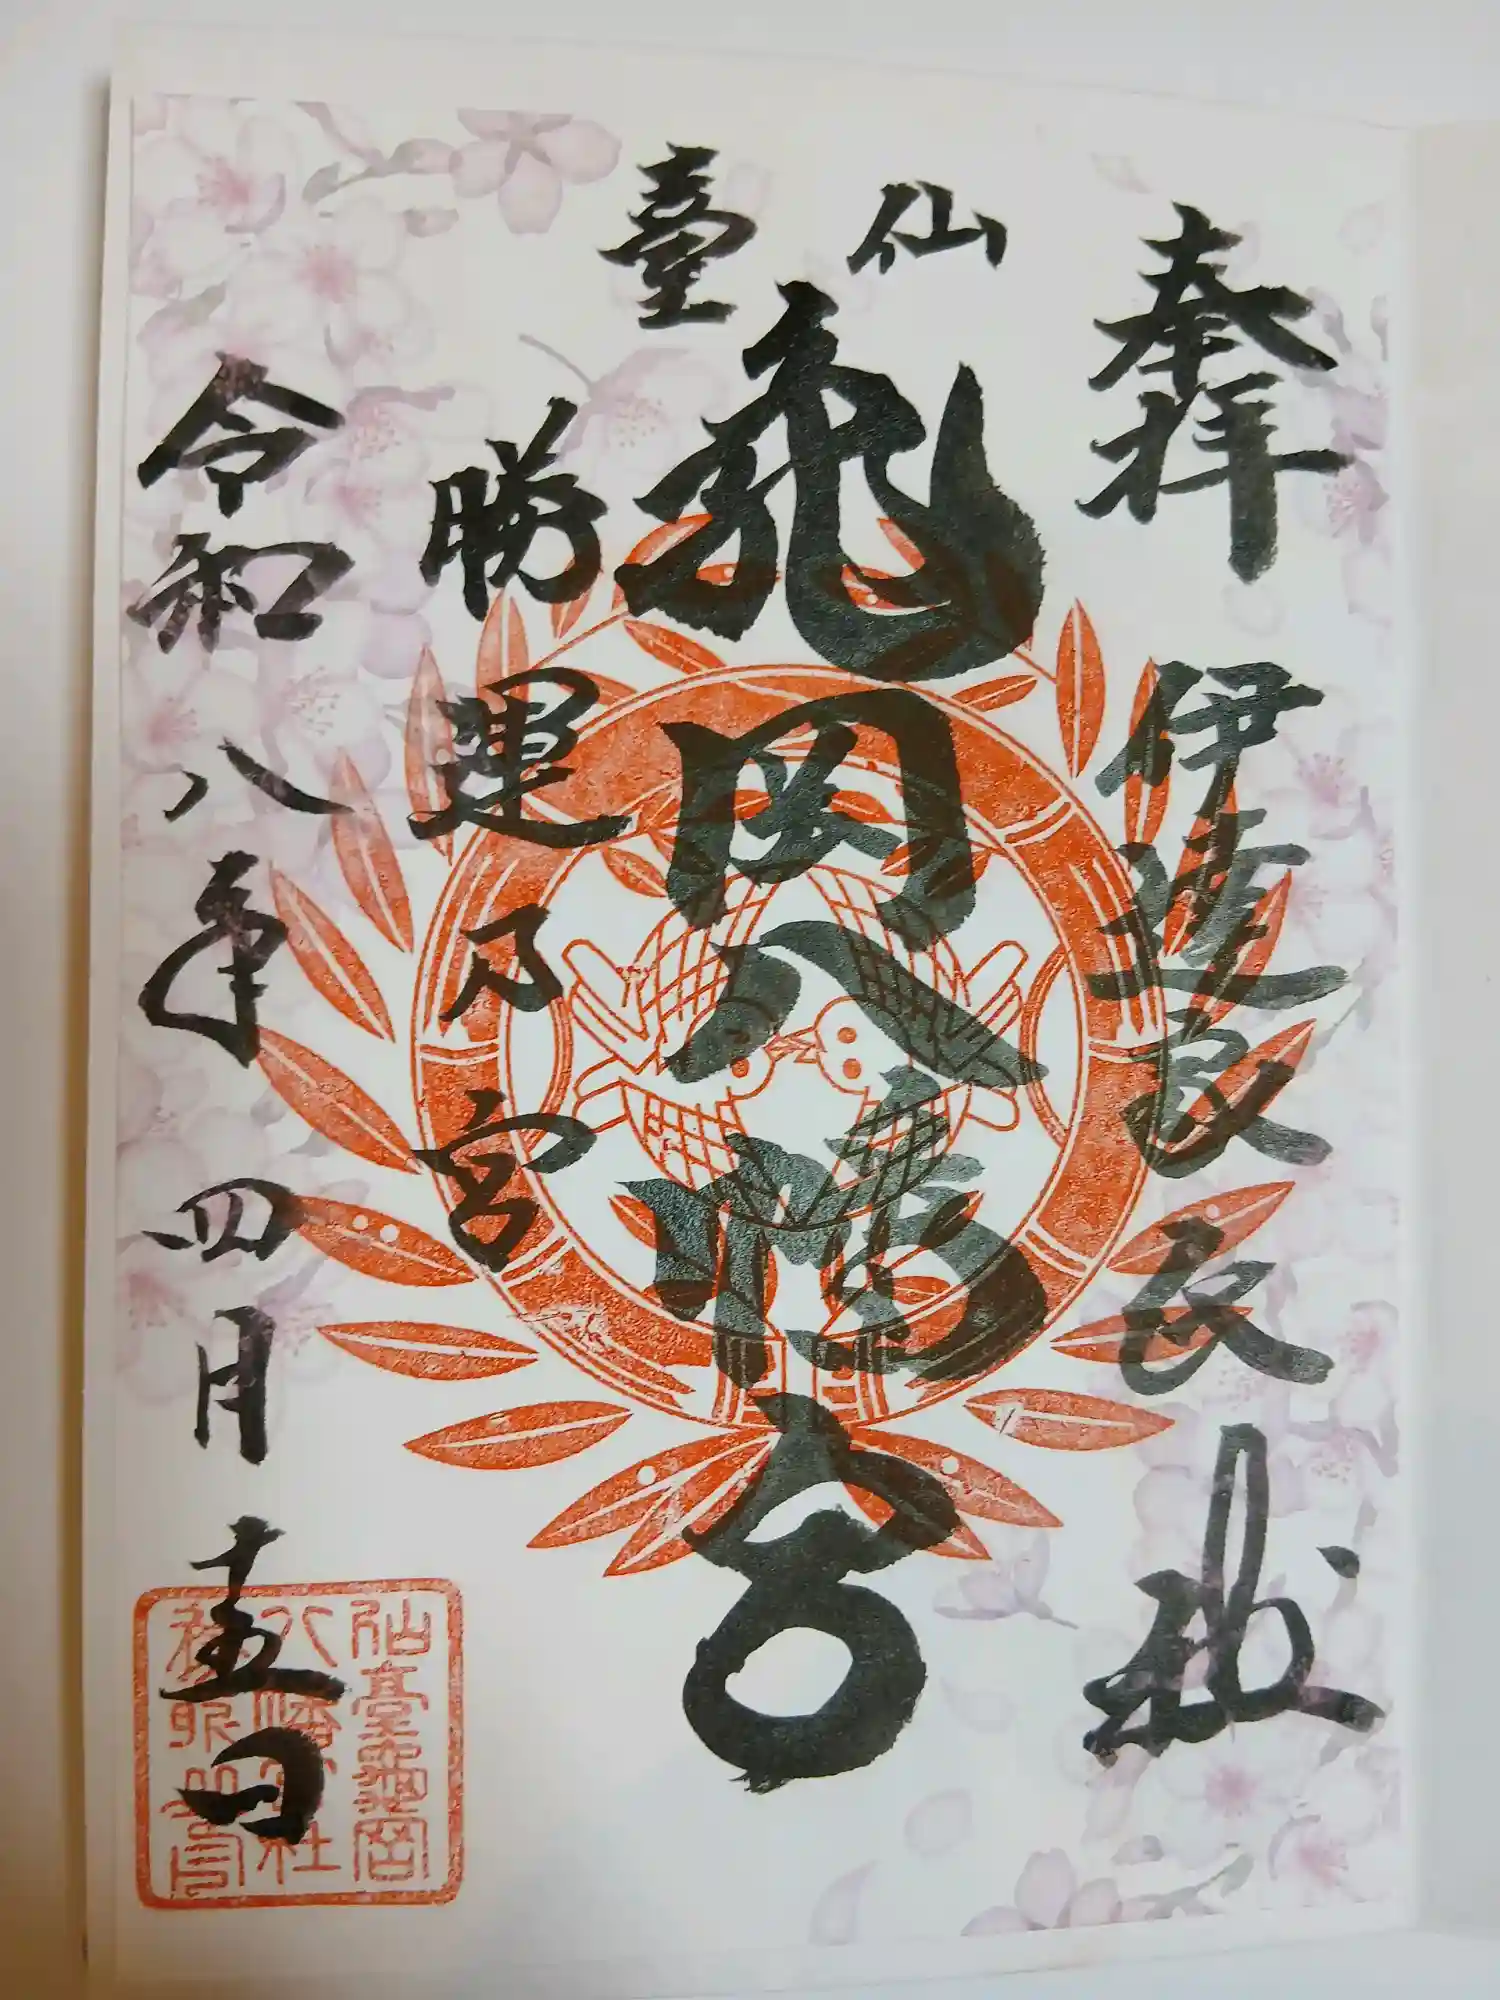 奉拝
伊達家氏神
仙臺
亀岡八幡宮
勝運乃宮
令和八年四月十五日
仙臺龜岡
八幡神社
務所之印